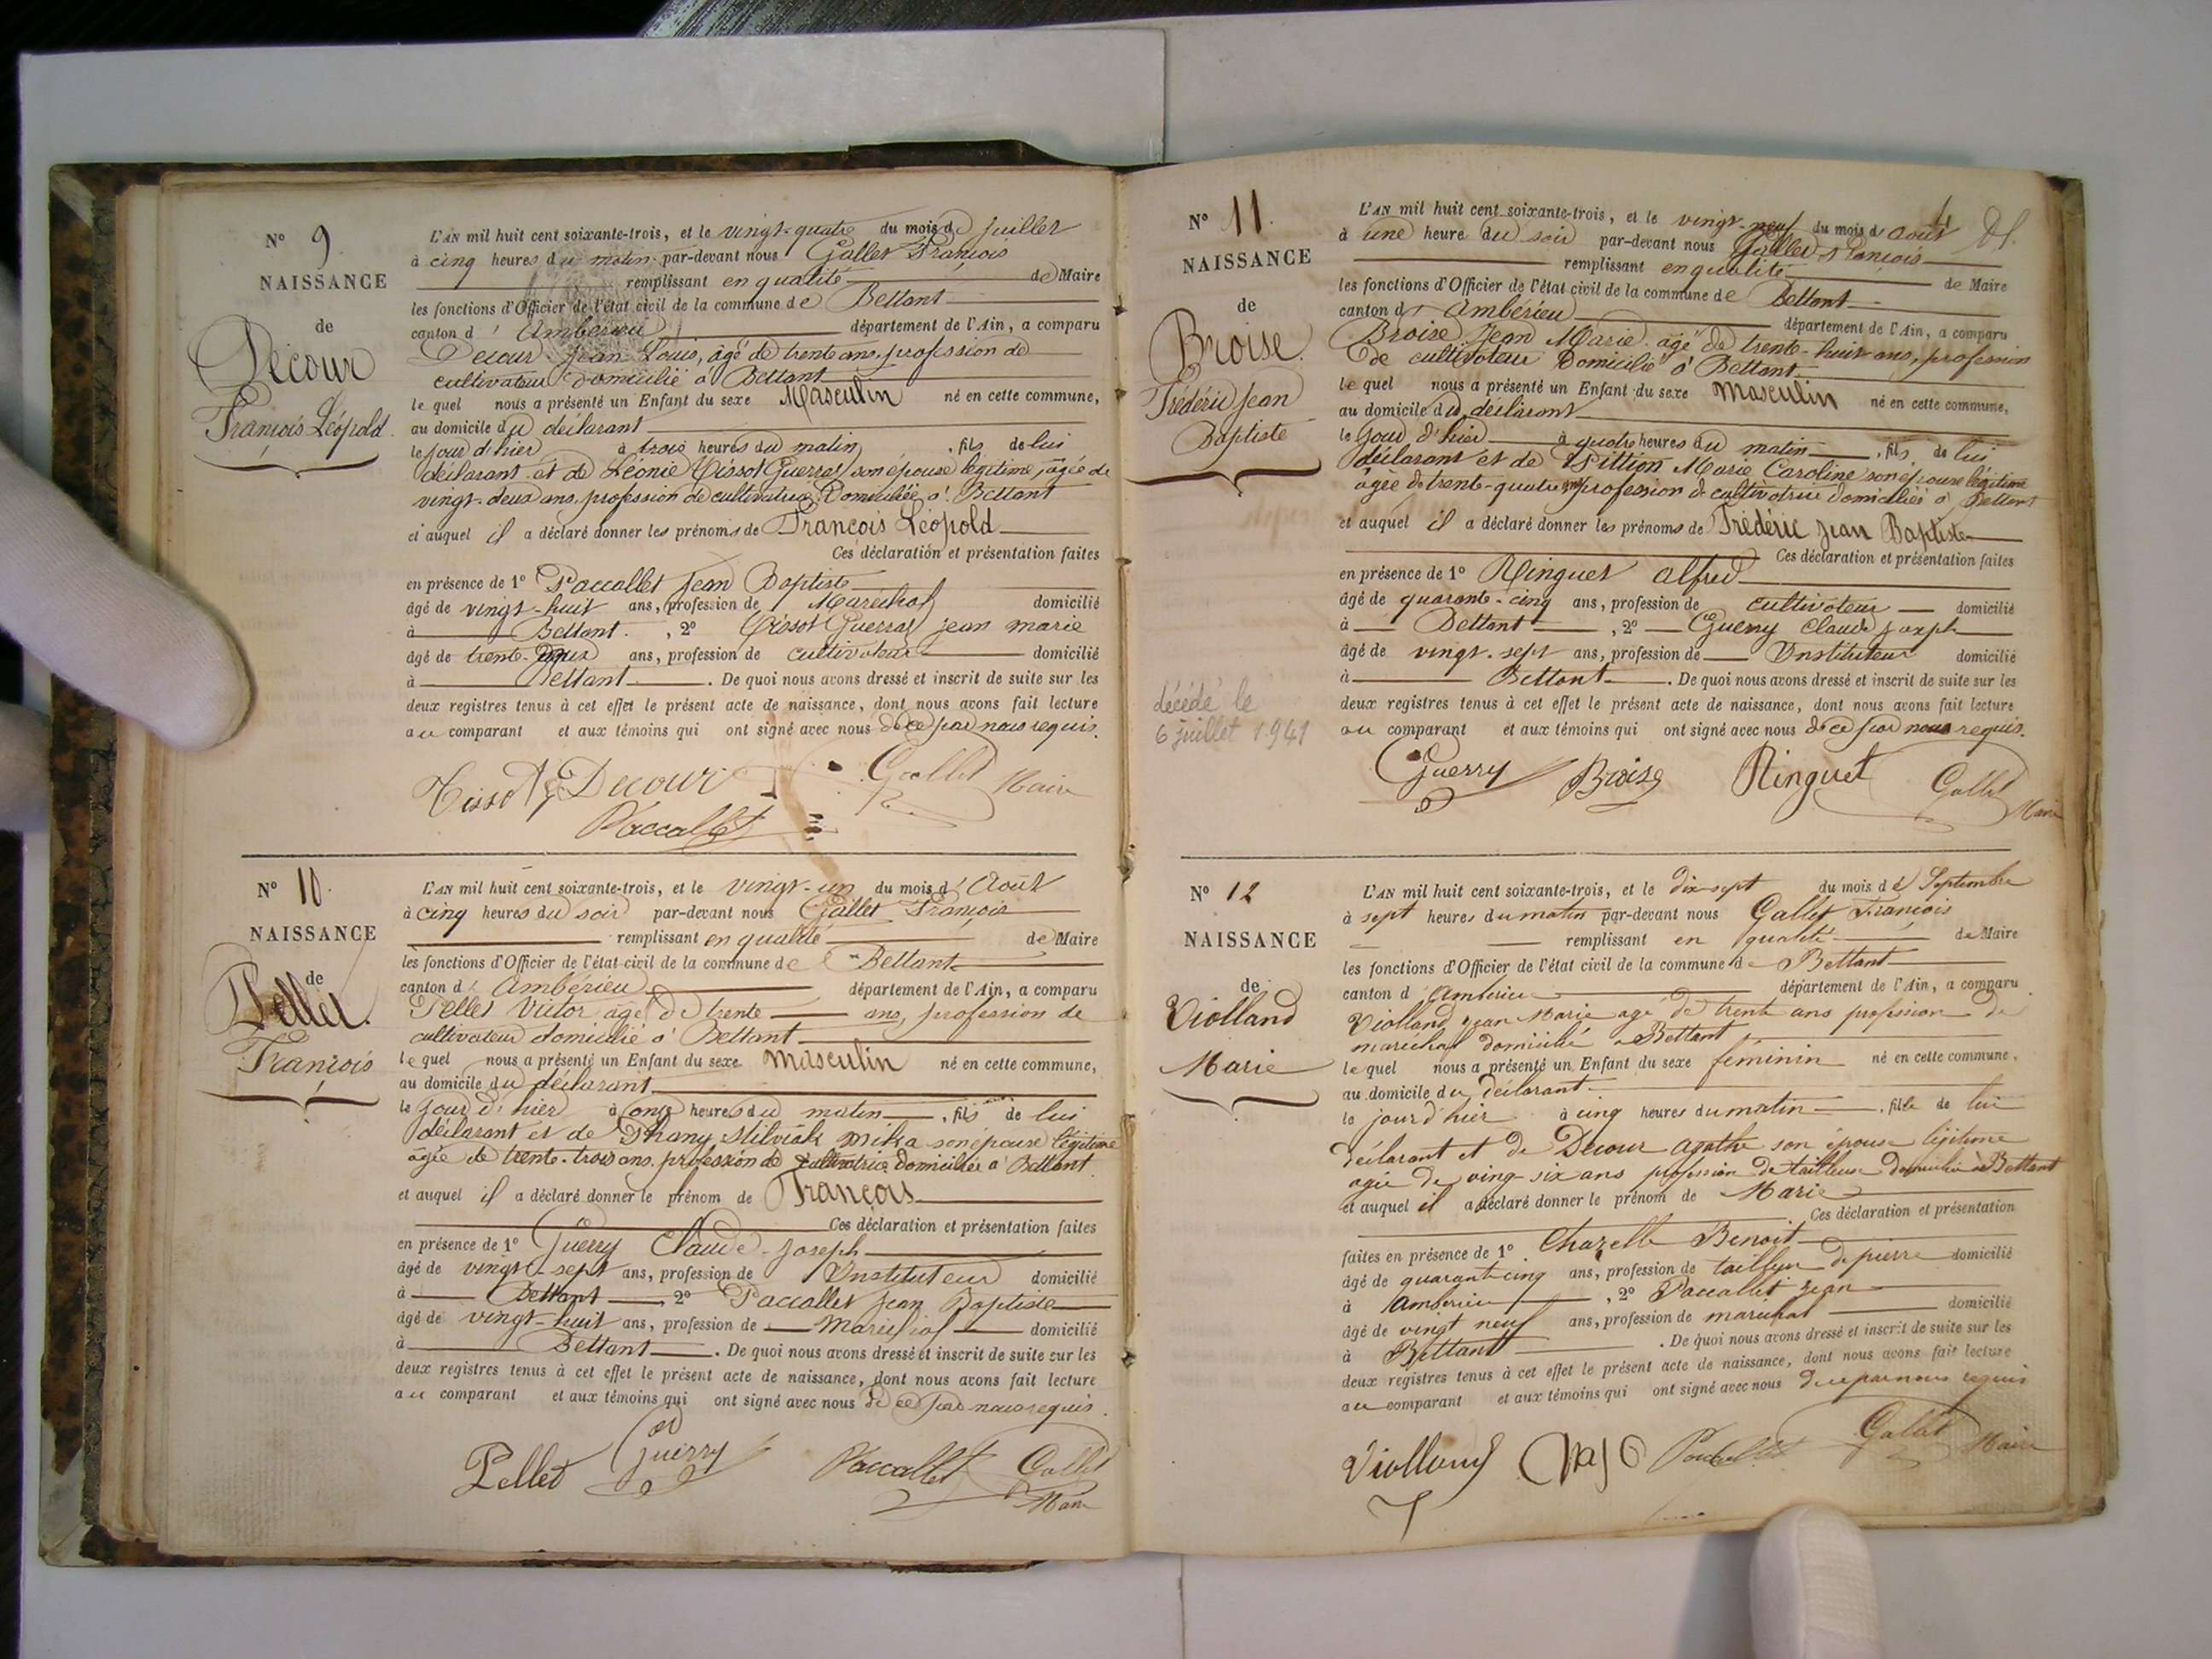 N° 9.
NAISSANCE
de
Décour
François Léopold.
L'AN mil huit cent soixante-trois, et le vingt-quatre du mois de Juillet
à cinq heures du matin par-devant nous Gallet François
remplissant en qualité de Maire
les fonctions d'Officier de l'état civil de la commune de Bettant
canton d'Ambérieu département de l'Ain, a comparu
Decour Jean Louis, âgé de trente ans, profession de
cultivateur domicilié à Bettant
lequel nous a présenté un Enfant du sexe Masculin né en cette commune,
au domicile du déclarant
le jour d'hier à trois heures du matin, fils de lui
déclarant et de Léonie Tissot Guerraz son épouse légitime, âgée de
vingt-deux ans, profession de cultivatrice Domiciliée à Bettant
et auquel il a déclaré donner les prénoms de François Léopold
Ces déclaration et présentation faites
en présence de 1° Paccallet Jean Baptiste
âgé de vingt-huit ans, profession de Maréchal domicilié
à Bettant. , 2° Tissot Guerraz jean marie
âgé de trente ans, profession de cultivateur domicilié
à Bettant. De quoi nous avons dressé et inscrit de suite sur les
deux registres tenus à cet effet le présent acte de naissance, dont nous avons fait lecture
au comparant et aux témoins qui ont signé avec nous de ce par nous requis.
Tissot Decour Gallet Maire
Paccallet
N° 10
NAISSANCE
de
Pellet.
François
L'AN mil huit cent soixante-trois, et le vingt-un du mois d'Août
à cinq heures du soir par-devant nous Gallet François
remplissant en qualité de Maire
les fonctions d'Officier de l'état civil de la commune de Bettant
canton d'Ambérieu département de l'Ain, a comparu
Pellet Victor âgé de trente ans, profession de
cultivateur domicilié à Bettant
lequel nous a présenté un Enfant du sexe Masculin né en cette commune,
au domicile du déclarant
le jour d'hier à onze heures du matin, fils de lui
déclarant et de Phany Milviak Mika son épouse légitime
âgée de trente-trois ans, profession de cultivatrice domiciliée à Bettant
et auquel il a déclaré donner le prénom de François
Ces déclaration et présentation faites
en présence de 1° Guerry Claude-Joseph
âgé de vingt-sept ans, profession de Instituteur domicilié
à Bettant, 2° Paccallet Jean Baptiste
âgé de vingt-huit ans, profession de Maréchal domicilié
à Bettant. De quoi nous avons dressé et inscrit de suite sur les
deux registres tenus à cet effet le présent acte de naissance, dont nous avons fait lecture
au comparant et aux témoins qui ont signé avec nous de ce par nous requis.
Pellet Guerry Paccallet Gallet
Maire
4
N° 11.
NAISSANCE
de
Broise.
Frédéric Jean
Baptiste
décédé le
6 juillet 1941
L'AN mil huit cent soixante-trois, et le vingt-neuf du mois d'Août
à une heure du soir par-devant nous Gallet François
remplissant en qualité de Maire
les fonctions d'Officier de l'état civil de la commune de Bettant
canton d'Ambérieu département de l'Ain, a comparu
Broise Jean Marie âgé de trente-huit ans, profession
de cultivateur Domicilié à Bettant
lequel nous a présenté un Enfant du sexe Masculin né en cette commune,
au domicile du déclarant
le Jour d'hier à quatre heures du matin, fils de lui
déclarant et de Pittion Marie Caroline son épouse légitime
âgée de trente-quatre ans profession de cultivatrice domiciliée à Bettant
et auquel il a déclaré donner les prénoms de Frédéric Jean Baptiste
Ces déclaration et présentation faites
en présence de 1° Ringuet Alfred
âgé de quarante-cinq ans, profession de cultivateur domicilié
à Bettant, 2° Guerry Claude Joseph
âgé de vingt-sept ans, profession de Instituteur domicilié
à Bettant. De quoi nous avons dressé et inscrit de suite sur les
deux registres tenus à cet effet le présent acte de naissance, dont nous avons fait lecture
au comparant et aux témoins qui ont signé avec nous de ce par nous requis.
Guerry Broise Ringuet Gallet
Maire
N° 12
NAISSANCE
de
Violland
Marie
L'AN mil huit cent soixante-trois, et le dix-sept du mois de Septembre
à sept heures du matin par-devant nous Gallet François
remplissant en qualité de Maire
les fonctions d'Officier de l'état civil de la commune de Bettant
canton d'Amberieu département de l'Ain, a comparu
Violland Jean Marie agé de trente ans profession de
marechal domicilié à Bettant
lequel nous a présenté un Enfant du sexe féminin né en cette commune,
au domicile du déclarant
le jour d'hier à cinq heures du matin, fille de lui
déclarant et de Decour Agathe son épouse légitime
agée de ving-six ans profession de tailleuse domiciliée à Bettant
et auquel il a déclaré donner le prénom de Marie
Ces déclaration et présentation
faites en présence de 1° Chazelle Benoit
âgé de quarante cinq ans, profession de tailleur de pierre domicilié
à Amberieu, 2° Paccallet Jean
âgé de vingt neuf ans, profession de maréchal domicilié
à Bettant. De quoi nous avons dressé et inscrit de suite sur les
deux registres tenus à cet effet le présent acte de naissance, dont nous avons fait lecture
au comparant et aux témoins qui ont signé avec nous de ce par nous requis
Violland Paccallet Gallet Maire